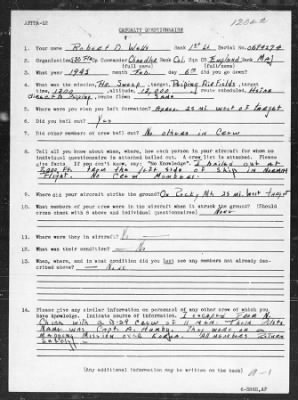 AFTTA-12
CASUALTY QUESTIONNAIRE
1. Your name Robert D. Wall Rank 1st Lt Serial No.
2. Organization 530 Ftr Gp Commander Chandler Rank Col Sqn CO England Rank Maj
(full name) (full name)
3. What year 1945 month Feb day 6th did you go down?
4. What was the mission, Ftr Sweep, target, Peiping Airfields, target
time, 1200, altitude, 12,000 route
Direct flying, Sian
5. Where were you when you left formation? 25 mi west of target.
6. Did you bail out? Yes
7. Did other members of crew bail out? No others in Crew
8. Tell all you know about when, where, how each person in your aircraft for whom no
individual questionnaire is attached bailed out. A crew list is attached. Please
give facts. If you don't know, say: "No Knowledge". I bailed out at
from the left side of ship in normal
flight. No Crew Members.
9. Where did your aircraft strike the ground? On Rocky Mt 25 mi. West Target
10. What members of your crew were in the aircraft when it struck the ground? (Should
cross check with 8 above and individual questionnaires) None
11. Where were they in aircraft? No
12. What was their condition? No
13. When, where, and in what condition did you last see any members not already des-
cribed above? None
14. Please give any similar information on personnel of any other crew of which you
have knowledge. Indicate source of information. I escaped from N.
China with a B-29 crew of 11 men. Their pilot
name was Capt. A. They were on a
mapping mission over Korea. All members return
safely
(Any additional information may be written on the back)
6-3861,AF